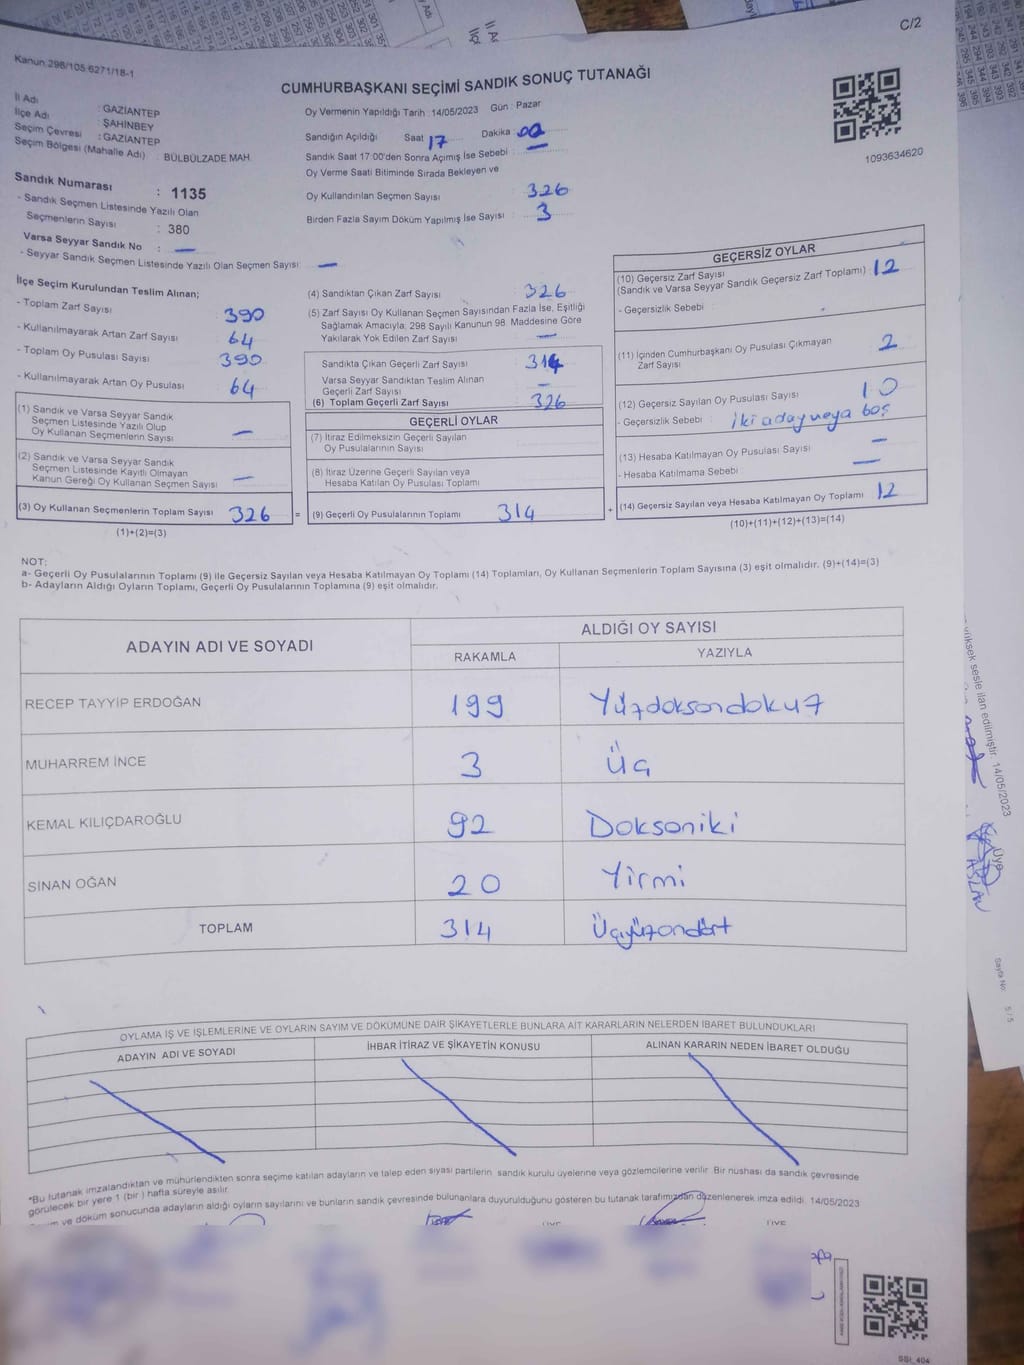 C/2
Kanun:298/105.6271/18-1
CUMHURBAŞKANI SEÇİMİ SANDIK SONUÇ TUTANAĞI
İl Adı : GAZİANTEP
İlçe Adı : ŞAHİNBEY
Seçim Çevresi : GAZİANTEP
Seçim Bölgesi (Mahalle Adı) : BÜLBÜLZADE MAH.
Sandık Numarası : 1135
- Sandık Seçmen Listesinde Yazılı Olan
Seçmenlerin Sayısı : 380
Varsa Seyyar Sandık No : —
- Seyyar Sandık Seçmen Listesinde Yazılı Olan Seçmen Sayısı: —
Oy Vermenin Yapıldığı Tarih : 14/05/2023 Gün : Pazar
Sandığın Açıldığı Saat 17 Dakika 00
Sandık Saat 17:00'den Sonra Açımış İse Sebebi : —
Oy Verme Saati Bitiminde Sırada Bekleyen ve
Oy Kullandırılan Seçmen Sayısı : 326
Birden Fazla Sayım Döküm Yapılmış İse Sayısı : 3
1093634620
İlçe Seçim Kurulundan Teslim Alınan;
- Toplam Zarf Sayısı 390
- Kullanılmayarak Artan Zarf Sayısı 64
- Toplam Oy Pusulası Sayısı 390
- Kullanılmayarak Artan Oy Pusulası 64
(1) Sandık ve Varsa Seyyar Sandık
Seçmen Listesinde Yazılı Olup
Oy Kullanan Seçmenlerin Sayısı —
(2) Sandık ve Varsa Seyyar Sandık
Seçmen Listesinde Kayıtlı Olmayan
Kanun Gereği Oy Kullanan Seçmen Sayısı —
(3) Oy Kullanan Seçmenlerin Toplam Sayısı 326
(1)+(2)=(3)
(4) Sandıktan Çıkan Zarf Sayısı 326
(5) Zarf Sayısı Oy Kullanan Seçmen Sayısından Fazla İse, Eşitliği
Sağlamak Amacıyla; 298 Sayılı Kanunun 98. Maddesine Göre
Yakılarak Yok Edilen Zarf Sayısı —
Sandıkta Çıkan Geçerli Zarf Sayısı 314
Varsa Seyyar Sandıktan Teslim Alınan
Geçerli Zarf Sayısı —
(6) Toplam Geçerli Zarf Sayısı 326
GEÇERLİ OYLAR
(7) İtiraz Edilmeksizin Geçerli Sayılan
Oy Pusulalarının Sayısı
(8) İtiraz Üzerine Geçerli Sayılan veya
Hesaba Katılan Oy Pusulası Toplamı
= (9) Geçerli Oy Pusulalarının Toplamı 314 +
GEÇERSİZ OYLAR
(10) Geçersiz Zarf Sayısı
(Sandık ve Varsa Seyyar Sandık Geçersiz Zarf Toplamı) 12
- Geçersizlik Sebebi :
(11) İçinden Cumhurbaşkanı Oy Pusulası Çıkmayan
Zarf Sayısı 2
(12) Geçersiz Sayılan Oy Pusulası Sayısı 10
- Geçersizlik Sebebi : İki aday veya boş
(13) Hesaba Katılmayan Oy Pusulası Sayısı —
- Hesaba Katılmama Sebebi : —
(14) Geçersiz Sayılan veya Hesaba Katılmayan Oy Toplamı 12
(10)+(11)+(12)+(13)=(14)
NOT:
a- Geçerli Oy Pusulalarının Toplamı (9) ile Geçersiz Sayılan veya Hesaba Katılmayan Oy Toplamı (14) Toplamları, Oy Kullanan Seçmenlerin Toplam Sayısına (3) eşit olmalıdır. (9)+(14)=(3)
b- Adayların Aldığı Oyların Toplamı, Geçerli Oy Pusulalarının Toplamına (9) eşit olmalıdır.
ADAYIN ADI VE SOYADI ALDIĞI OY SAYISI
RAKAMLA YAZIYLA
RECEP TAYYİP ERDOĞAN 199 Yüzdoksandokuz
MUHARREM İNCE 3 Üç
KEMAL KILIÇDAROĞLU 92 Doksaniki
SİNAN OĞAN 20 Yirmi
TOPLAM 314 Üçyüzondört
OYLAMA İŞ VE İŞLEMLERİNE VE OYLARIN SAYIM VE DÖKÜMÜNE DAİR ŞİKAYETLERLE BUNLARA AİT KARARLARIN NELERDEN İBARET BULUNDUKLARI
ADAYIN ADI VE SOYADI İHBAR İTİRAZ VE ŞİKAYETİN KONUSU ALINAN KARARIN NEDEN İBARET OLDUĞU
*Bu tutanak imzalandıktan ve mühürlendikten sonra seçime katılan adayların ve talep eden siyasi partilerin sandık kurulu üyelerine veya gözlemcilerine verilir. Bir nüshası da sandık çevresinde
görülecek bir yere 1 (bir) hafta süreyle asılır.
ve döküm sonucunda adayların aldığı oyların sayılarını ve bunların sandık çevresinde bulunanlara duyurulduğunu gösteren bu tutanak tarafımızdan düzenlenerek imza edildi. 14/05/2023
yüksek sesle ilan edilmiştir. 14/05/2023
Üye
ASLAN
Sayfa No: 5 / 5